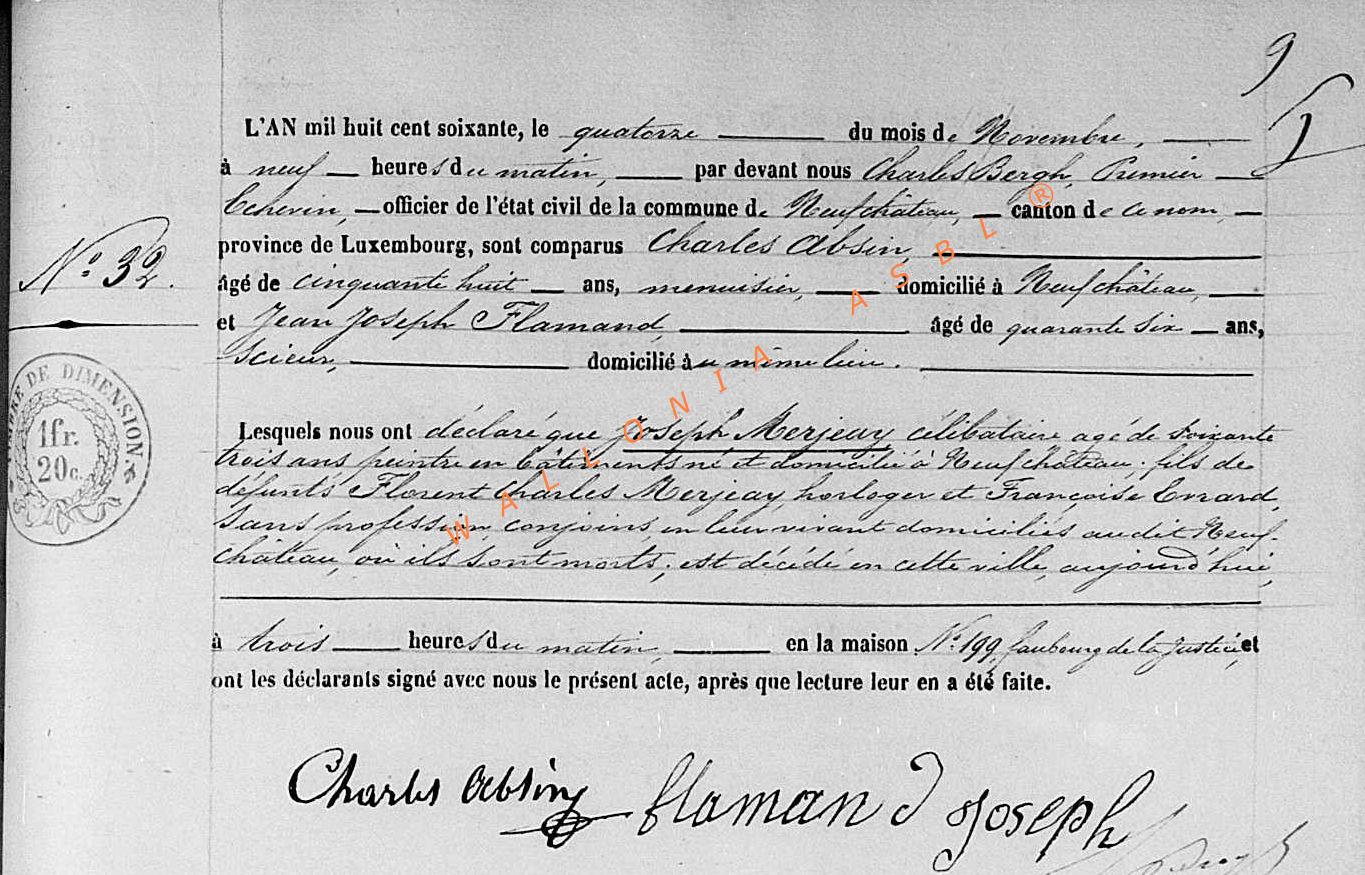 9
L'AN mil huit cent soixante, le quatorze du mois de Novembre,
à neuf heures du matin, par devant nous Charles Bergh, Premier
Echevin, officier de l'état civil de la commune de Neufchâteau, canton de ce nom,
province de Luxembourg, sont comparus Charles Absin,
N.° 32.
âgé de cinquante huit ans, menuisier, domicilié à Neufchâteau,
et Jean Joseph Flamand, âgé de quarante six ans,
Scieur, domicilié au même lieu.
TIMBRE DE DIMENSION
1fr.
20c.
Lesquels nous ont déclaré que Joseph Merjeay célibataire agé de soixante
trois ans peintre en bâtiments né et domicilié à Neufchâteau, fils de
défunts Florent Charles Merjeay, horloger et Françoise Evrard,
sans profession, conjoins, en leur vivant domiciliés audit Neuf-
château, où ils sont morts, est décédé en cette ville, aujourd'hui,
à trois heures du matin, en la maison N.° 199, faubourg de la Justice, et
ont les déclarants signé avec nous le présent acte, après que lecture leur en a été faite.
Charles Absin flamand Joseph
WALLONIA ASBL ®